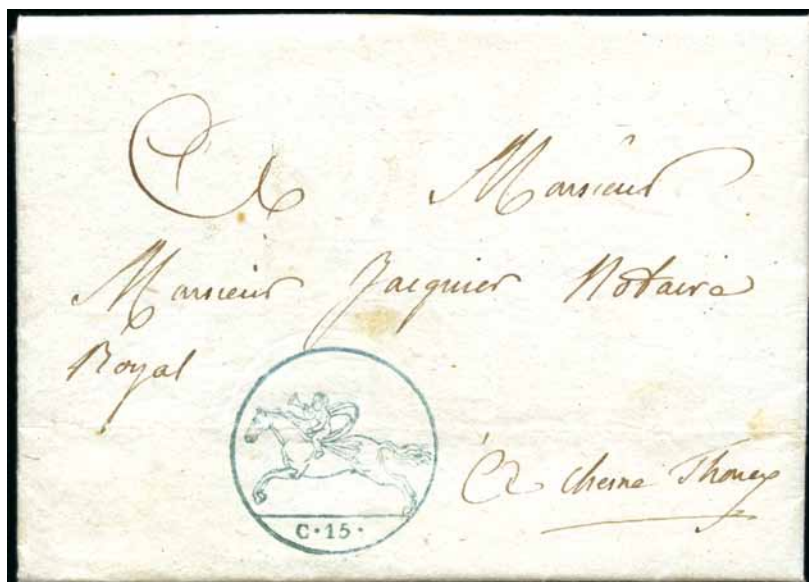 A Monsieur
Monsieur Jacquier Notaire
Royal
C·15·
A chesne Thonex